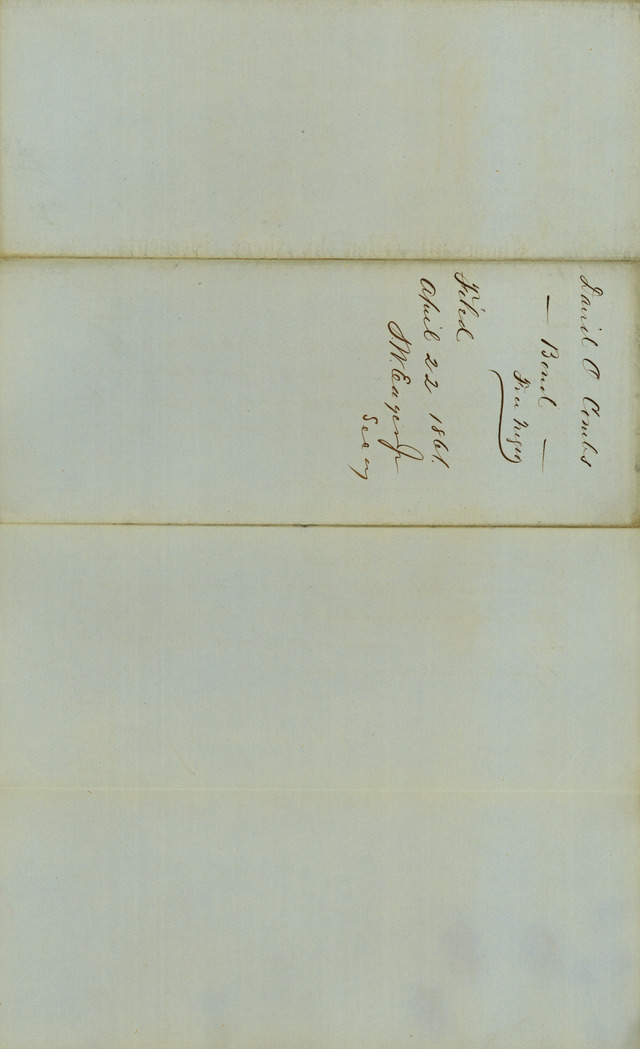 David O Combs
— Bond —
Free Negro
Filed
April 22 1861.
Secy